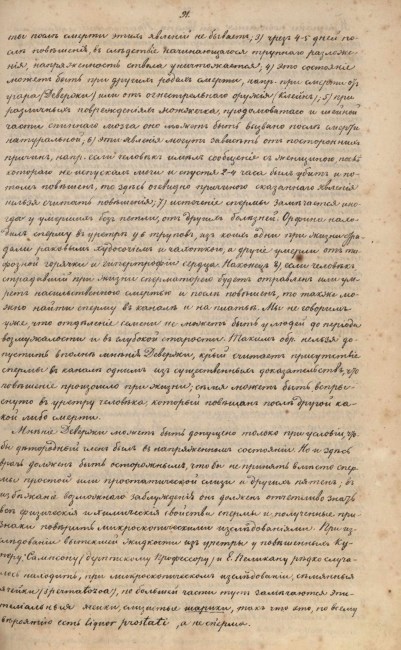 91.
тог послѣ смерти этихъ явленій не бываетъ; 3) чрезъ 4-5 дней по-
слѣ повѣшенія, въ слѣдствіе начинающагося трупнаго разложе-
нія, напряженность ствола уничтожается, 4) это состояніе
можетъ быть при другихъ родахъ смерти, напр. при смерти отъ
угара (Девержи) или отъ огнестрѣльнаго оружія (Клейнъ); 5) при
различныхъ поврежденіяхъ мозжечка, продолговатаго и шейной
части спиннаго мозга оно можетъ быть вызвано послѣ смерти
натуральной; 6) эти явленія могутъ зависѣть отъ постороннихъ
причинъ, напр. если человѣкъ имѣлъ сообщеніе съ женщиною послѣ
котораго не испускалъ мочи и спустя 2-4 часа былъ убитъ и по-
томъ повѣшенъ, то здѣсь очевидно причиною сказаннаго явленія
нельзя считать повѣшенія; 7) истеченіе спермы замѣчается ино-
гда у умершихъ безъ петли, отъ другихъ болѣзней. Орфила нахо-
дилъ сперму въ уретрѣ у труповъ, изъ коихъ одни при жизни стра-
дали раковымъ худосочіемъ и чахоткою, а другіе умерли отъ ти-
фозной горячки и гипертрофіи сердца. Наконецъ 8) если человѣкъ
страдавшій при жизни сперматорреею будетъ отравленъ или ум-
ретъ насильственною смертью и послѣ повѣшенъ, то также мо-
жно найти сперму въ каналѣ и на платьѣ. Мы не говоримъ
уже, что отдѣленіе семени не можетъ быть у людей до періода
возмужалости и въ глубокой старости. Такимъ обр. нельзя до-
пустить вполнѣ мнѣнія Девержи, кый считаетъ присутствіе
спермы въ каналѣ однимъ изъ существенныхъ доказательствъ, что
повѣшеніе произошло при жизни; сѣмя можетъ быть впрыс-
нуто въ уретру человѣка, который повѣшанъ послѣ другой ка-
кой либо смерти.
Мнѣніе Девержи можетъ быть допущено только при условіи, что-
бы дѣтородный членъ былъ въ напряженномъ состояніи. Но и здѣсь
врачъ долженъ быть осторожнымъ, чтобы не принять вмѣсто спер-
мы простой или простатической слизи и другихъ пятенъ; въ
избѣжаніе возможнаго заблужденія онъ долженъ отчетливо знать
всѣ физическія и химическія свойства спермы и полученные при-
знаки повѣрить микроскопическими изслѣдованіями. При из-
слѣдованіи вытекшей жидкости изъ уретры у повѣшенныхъ Ку-
перу, Самсону (дерптскому профессору) и Е. Пеликану рѣдко случа-
лось находить, при микроскопическомъ изслѣдованіи, сѣмянныя
ячейки (spermatozoa), по большей части тутъ замѣчаются эпи-
теліальныя ячейки, слизистые шарики, такъ что это, по всему
вѣроятію есть liquor prostati, а не сперма.